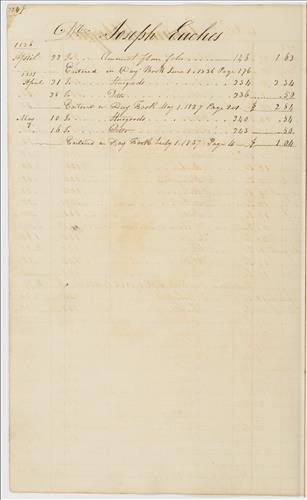 Mr. Joseph Enches
1836
April 22 To Amount from folio 145 1 63
Entered in Day Book June 1. 1836 Page 176
1837
April 21 To Sturgeons 234 2 34
28 To Ditto 236 .50
Entered in Day Book May 1. 1837 Page 241 $ 2 84
May 10 To Sturgeons 240 .54
16 To Ditto 243 .50
Entered in Day Book July 1. 1837 Page 4 $ 1.04